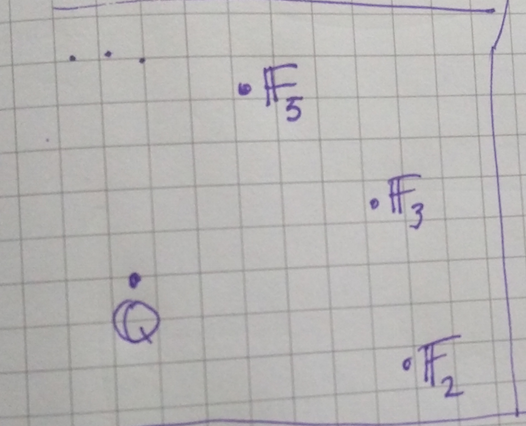 ...
𝔽₅
𝔽₃
ℚ
𝔽₂